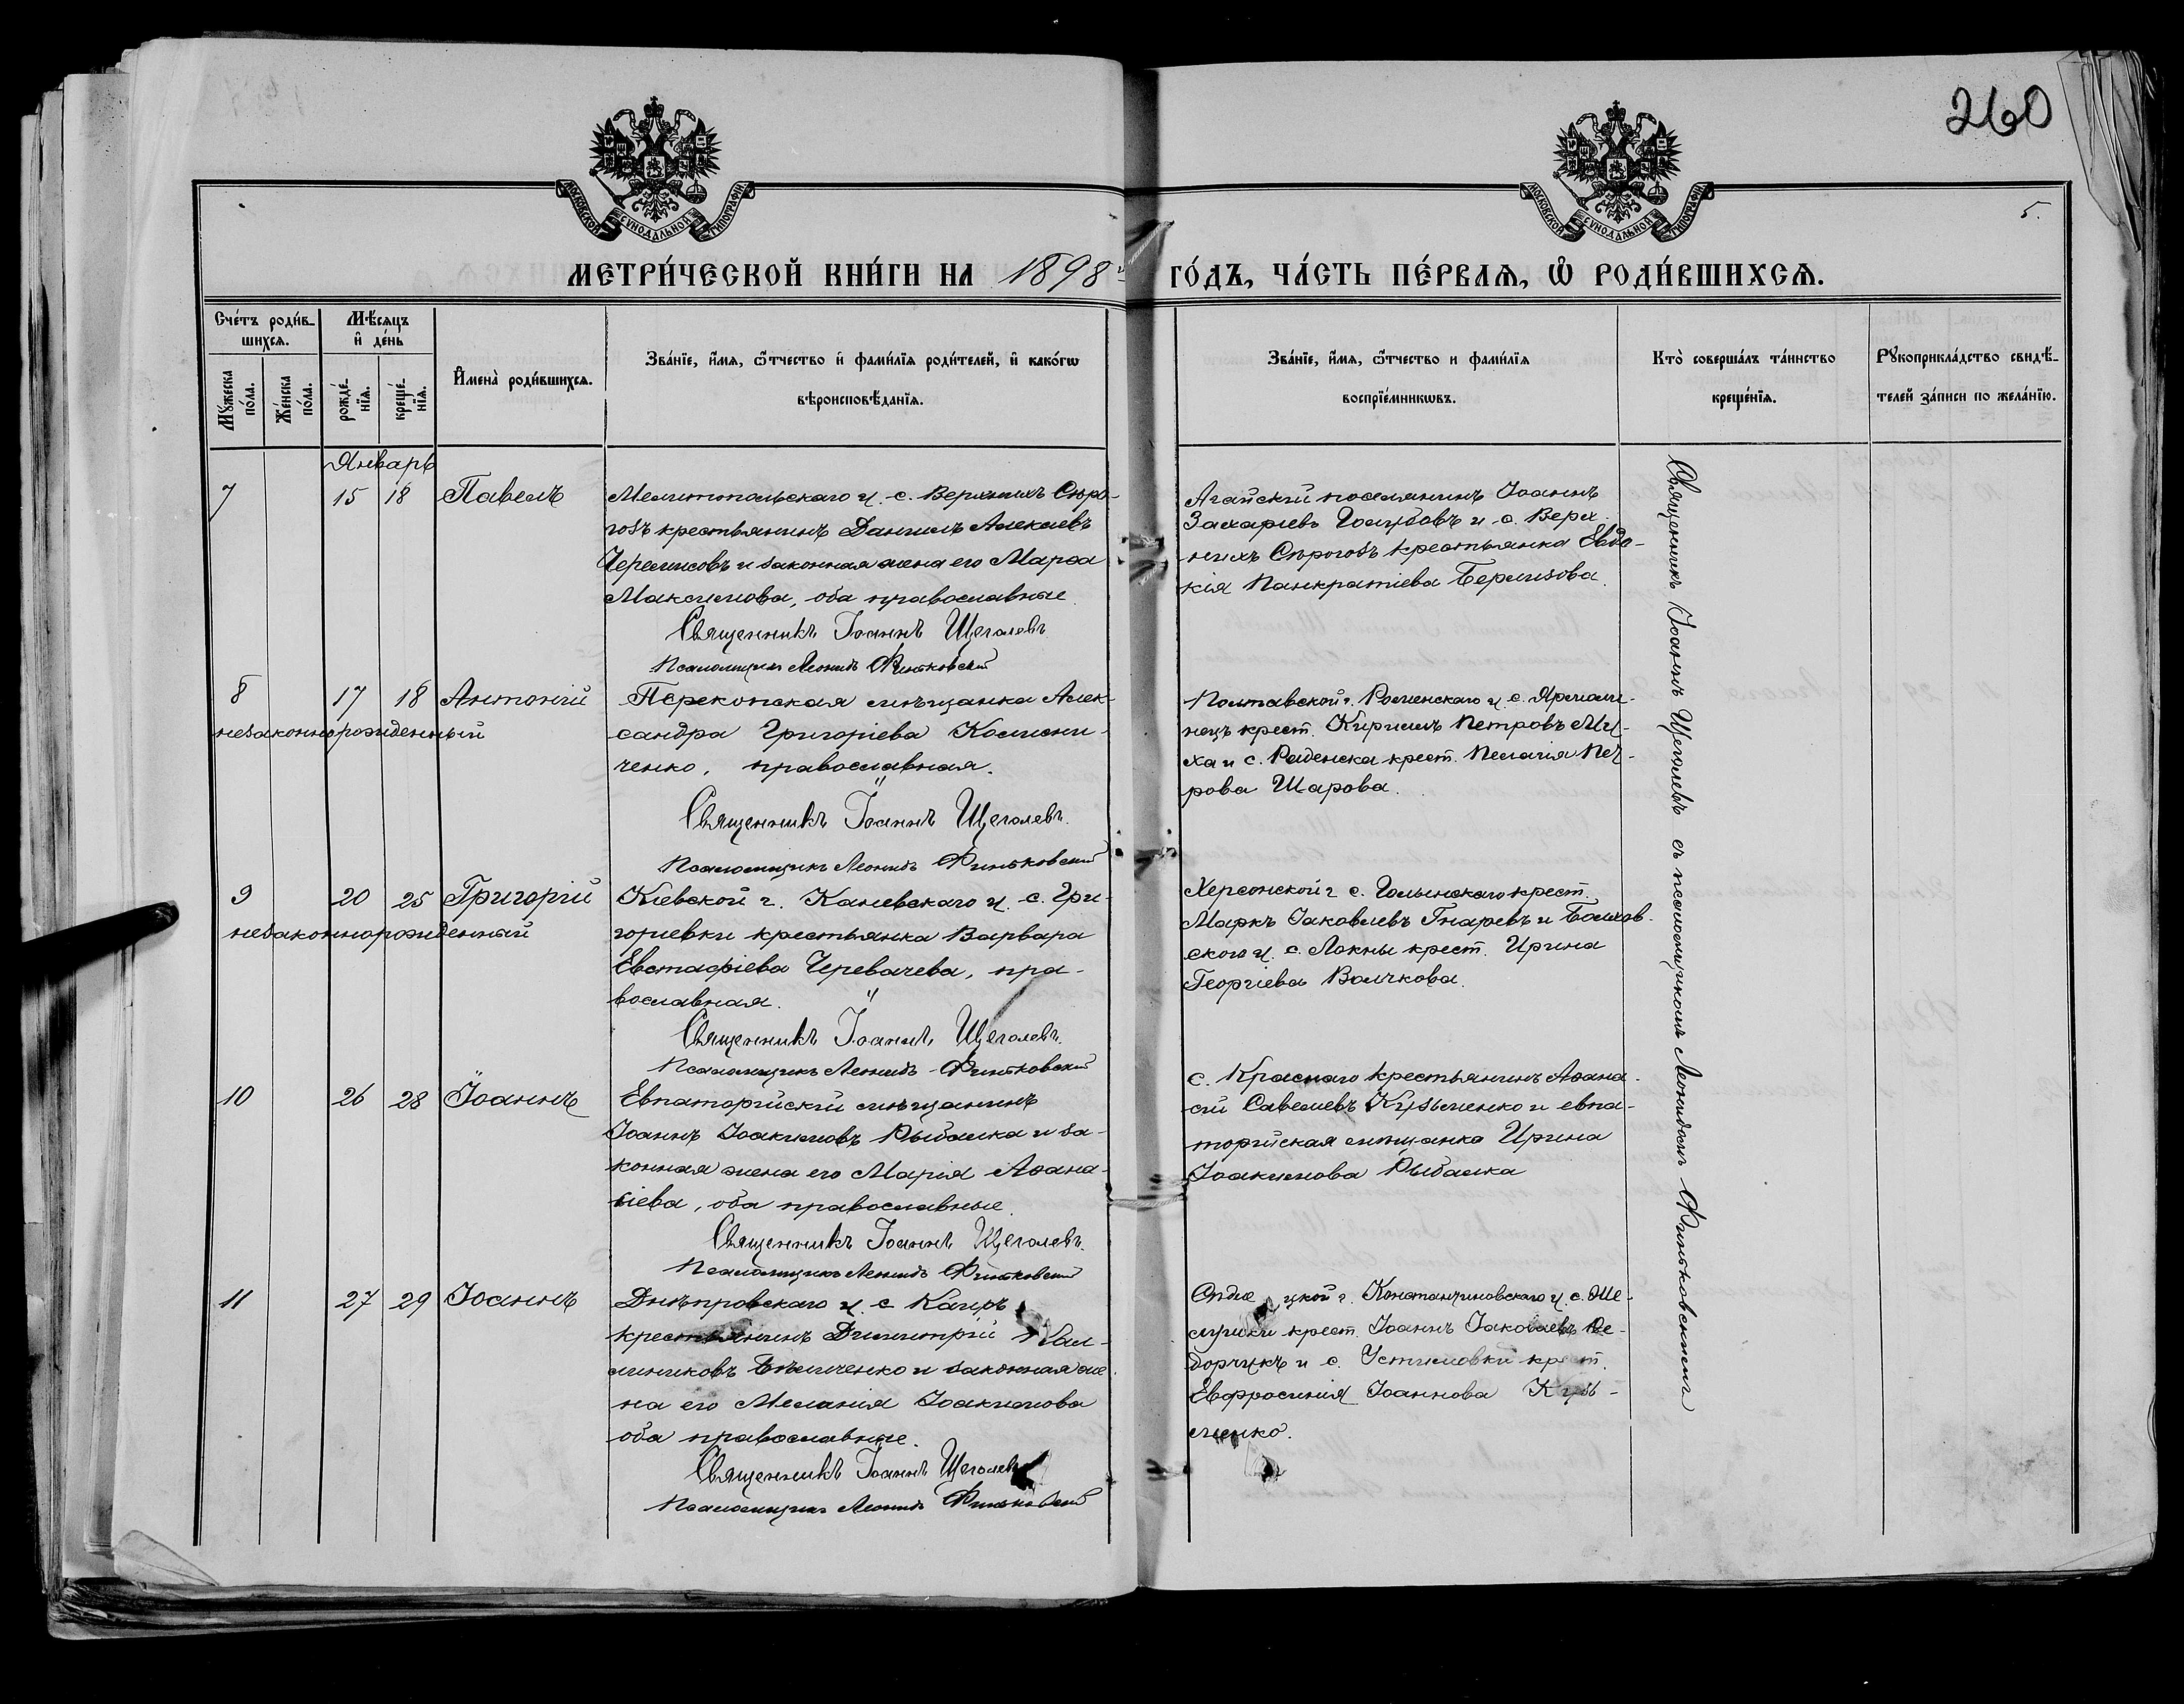 260
5.
МОСКОВСКОЙ СѴНОДАЛЬНОЙ ТИПОГРАФІИ
МОСКОВСКОЙ СѴНОДАЛЬНОЙ ТИПОГРАФІИ
МЕТРИ́ЧЕСКОЙ КНИ́ГИ НА 1898й ГО́ДЪ, ЧА́СТЬ ПЕ́РВАѦ, Ѡ҆ РОДИ́ВШИХСѦ.
Сче́тъ роди́в-
шихсѧ.
Мѣ́сѧцъ
и҆ де́нь
Мꙋ́жеска по́ла.
Же́нска по́ла.
рожде́-
нїѧ.
креще́-
нїѧ.
И҆мена̀ роди́вшихсѧ.
Зва́нїе, и҆́мѧ, ѻ҆́тчество и҆ фами́лїѧ роди́телей, и҆ како́гѡ
вѣроисповѣ́данїѧ.
Зва́нїе, и҆́мѧ, ѻ҆́тчество и фами́лїѧ
воспрїе́мникѡвъ.
Кто̀ соверша́лъ та́инство
креще́нїѧ.
Рꙋкоприкла́дство свидѣ́-
телей за́писи по жела́нїю.
Январь
7 15 18 Павелъ
Мелитопольскаго у. с. Верхнихъ Сѣро-
гозъ крестьянинъ Даніилъ Алексѣевъ
Черемисовъ и законная жена его Марѳа
Максимова, оба православные.
Священникъ Іоаннъ Щеголевъ.
Псаломщикъ Леонидъ Финьковскій
Агайскій поселянинъ Іоаннъ
Захаріевъ Голубовъ и с. Верх-
нихъ Сѣрогозъ крестьянка Евдо-
кія Панкратіева Бермизова.
8 17 18 Антоній
незаконнорожденный
Перекопская мѣщанка Алек-
сандра Григоріева Колисни-
ченко, православная.
Священникъ Іоаннъ Щеголевъ.
Псаломщикъ Леонидъ Финьковскій
Полтавской г. Роменскаго у. с. Ярмоли-
нецъ крест. Кириллъ Петровъ Му-
ха и с. Раденска крест. Пелагія Пет-
рова Шарова.
9 20 25 Григорій
незаконнорожденный
Кіевской г. Каневскаго у. с. Гри-
горіевки крестьянка Варвара
Евстафіева Черевачева, пра-
вославная.
Священникъ Іоаннъ Щеголевъ.
Псаломщикъ Леонидъ Финьковскій
Херсонской г. с. крест.
Маркъ Іаковлевъ Гнаревъ и Болхов-
ского у. с. Локны крест. Ирина
Георгіева Волчкова.
10 26 28 Іоаннъ
Евпаторійскій мѣщанинъ
Іоаннъ Іоакимовъ Рыбалка и за-
конная жена его Марія Аѳана-
сіева, оба православные.
Священникъ Іоаннъ Щеголевъ.
Псаломщикъ Леонидъ Финьковскій
с. Краснаго крестьянинъ Аѳана-
сій Савеліевъ Кузьменко и евпа-
торійская мѣщанка Ирина
Іоакимова Рыбалка
11 27 29 Іоаннъ
Днѣпровскаго у. с. Каиръ
крестьянинъ Димитрій Кал-
линиковъ Ѣльченко и законная же-
на его Меланія Іоакимова
оба православные.
Священникъ Іоаннъ Щеголевъ
Псаломщикъ Леонидъ Финьковскій
цкой г. Константиновскаго у. с. Ше-
крест. Іоаннъ Іаковлевъ Ѳе-
дорчукъ и с. Устимовки крест.
Евфросинія Іоаннова Кузь-
менко.
Священникъ Іоаннъ Щеголевъ съ псаломщикомъ Леонидомъ Финьковскимъ